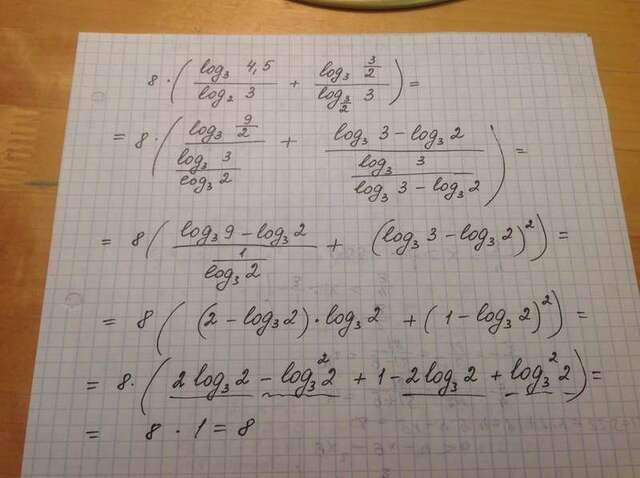 8 · ( log₃ 4,5 / log₂ 3 + log₃ 3/2 / log_{3/2} 3 ) =
= 8 · ( log₃ 9/2 / (log₃ 3 / log₃ 2) + (log₃ 3 – log₃ 2) / (log₃ 3 / (log₃ 3 – log₃ 2)) ) =
= 8 ( (log₃ 9 – log₃ 2) / (1 / log₃ 2) + (log₃ 3 – log₃ 2)² ) =
= 8 ( (2 – log₃ 2) · log₃ 2 + (1 – log₃ 2)² ) =
= 8 · ( 2 log₃ 2 – log₃² 2 + 1 – 2 log₃ 2 + log₃² 2 ) =
= 8 · 1 = 8